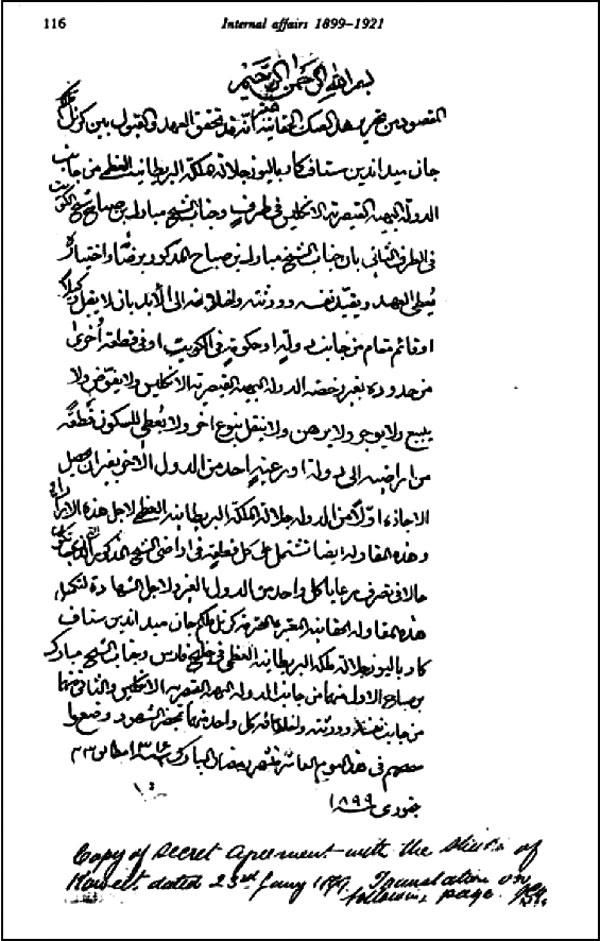 116 Internal affairs 1899–1921
بسم الله الرحمن الرحيم
المقصود من تحرير هذ الصك الحقانية هو انه قد تحقق العهد والقبول بين كرنل
جان ميد اندين ستاف كاد باليوز جلالة ملكة البريطانية العظمى من جانب
الدولة البهية القيصرية الانكليس في طرف وجناب الشيخ مبارك بن صباح شيخ الكويت
في الطرف الثاني بان جناب الشيخ مبارك بن صباح المذكور برضاه واختياره
يُعطي العهد ويقيّد نفسه وورثته واخلافه الى الأبد بان لا يقبل وكيلا
او قائم مقام من جانب دولةٍ او حكومةٍ في الكويت او في قطعة أُخرى
من حدوده بغير رخصة الدولة البهية القيصرية الانكليس ولا يفوّض ولا
يبيع ولا يوجر ولا يرهن ولا ينقل بنوع اخر ولا يُعطي للسكون قُطعةً
من اراضيه الى دولة او رعية احد من الدول الاخرى بغير ان يحصل
الاجازة اوّلاً من الدولة جلالة الملكة البريطانية العظمى لاجل هذه
وهذه المقاولة ايضا تشتمل على كل قطعة في اراضي الشيخ المذكور
حالا في تصرف رعايا كل واحد من الدول بالغير ولاجل الشهادة لتكميل
هذه المقاولة الحقانية كرنل جان ميد اندين ستاف
كاد باليوز جلالة ملكة البريطانية العظمى في خليج فارس وجناب الشيخ مبارك
بن صباح الاول منهما من جانب الدولة البهية القيصرية الانكليس والثاني منهما
من جانب نفسه وورثته واخلافه كل واحد منهما بمحضر الشهود وضعوا
في هذ اليوم العاشر شهر رمضان المبارك ١٣١٦ مطابق ٢٣
جنوري ١٨٩٩
Copy of Secret Agreement with the Sheikh of
Koweit dated 23rd January 1899. Translation on
following page.